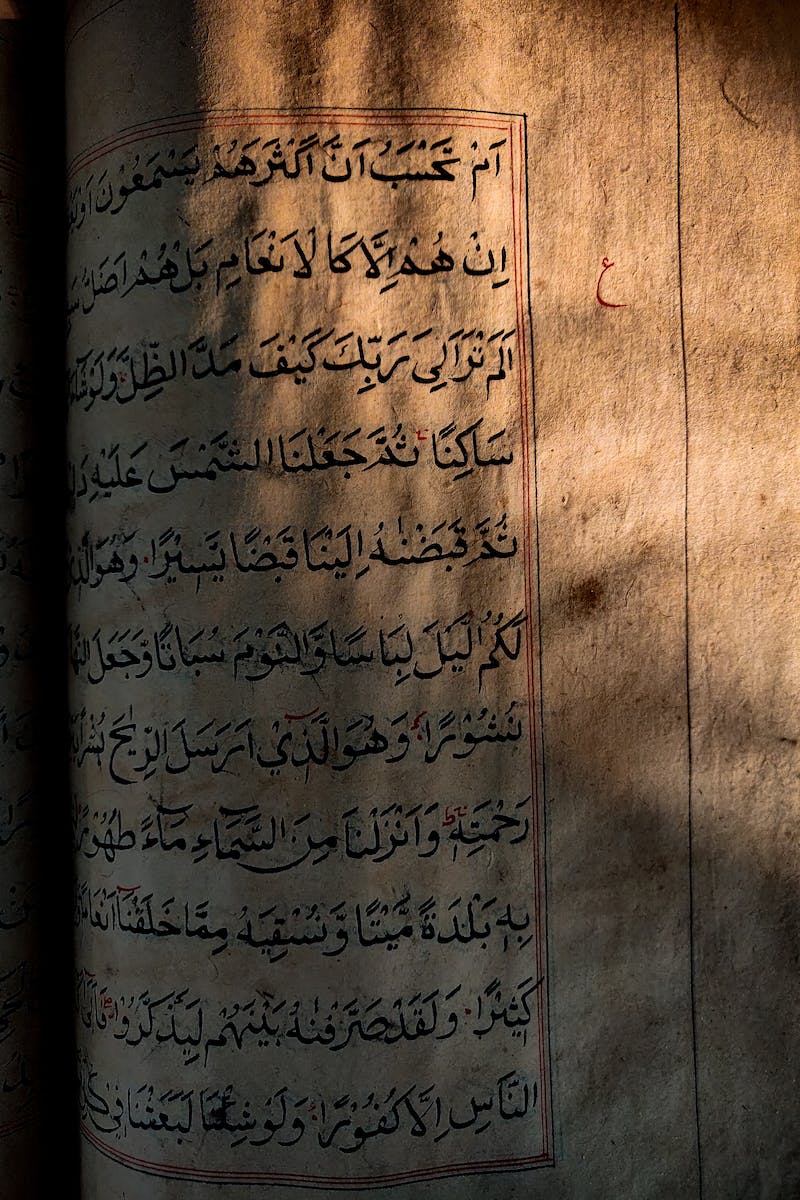 اَمْ تَحْسَبُ اَنَّ اَكْثَرَهُمْ يَسْمَعُوْنَ
اِنْ هُمْ اِلَّا كَا لْاَنْعَامِ بَلْ هُمْ اَضَلُّ
ع
اَلَمْ تَرَ اَلِی رَبِّكَ كَيْفَ مَدَّ الظِّلَّ وَلَوْ
سَاكِنًا ثُمَّ جَعَلْنَا الشَّمْسَ عَلَيْهِ
ثُمَّ قَبَضْنٰهُ اِلَيْنَا قَبْضًا يَّسِيْرًا وَهُوَ
لَكُمُ الَّيْلَ لِبَاسًا وَّالنَّوْمَ سُبَاتًا وَّجَعَلَ
نُشُوْرًا وَهُوَ الَّذِيْ اَرْسَلَ الرِّيٰحَ
رَحْمَتِهٖ وَاَنْزَلْنَا مِنَ السَّمَآءِ مَآءً طَهُوْرًا
بِهٖ بَلْدَةً مَّيْتًا وَّنُسْقِيَهٗ مِمَّا خَلَقْنَا
كَثِيْرًا وَلَقَدْ صَرَّفْنٰهُ بَيْنَهُمْ لِيَذَّكَّرُوْا
النَّاسِ اِلَّا كُفُوْرًا وَلَوْ شِئْنَا لَبَعَثْنَا فِيْ